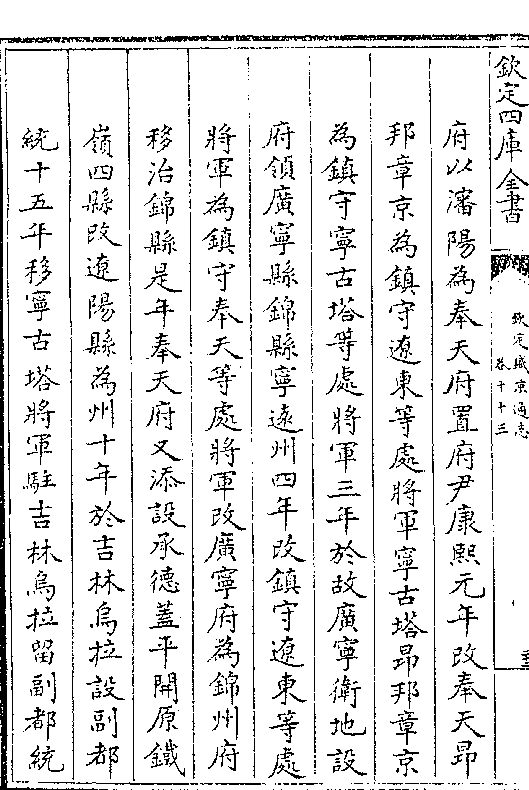 欽定四庫全書
欽定盛京通志
卷二十三
府以瀋陽為奉天府置府尹康熙元年改奉天昂
邦章京為鎮守遼東等處將軍寧古塔昂邦章京
為鎮守寧古塔等處將軍三年於故廣寧衛地設
府領廣寧縣錦縣寧遠州四年改鎮守遼東等處
將軍為鎮守奉天等處將軍改廣寧府為錦州府
移治錦縣是年奉天府又添設承德蓋平開原鐵
嶺四縣改遼陽縣為州十年於吉林烏拉設副都
統十五年移寧古塔將軍駐吉林烏拉留副都統